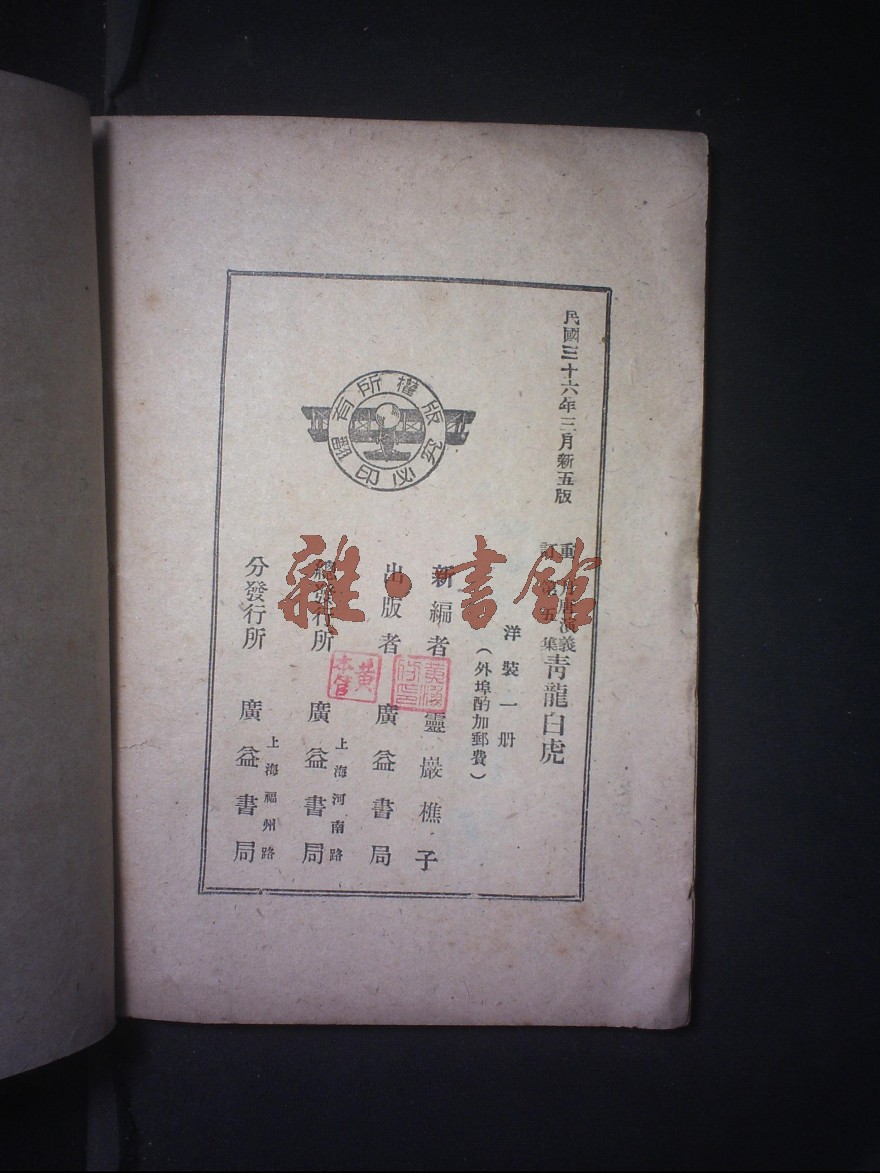 民國三十六年三月新五版
重訂
唐演義
第五集
青龍白虎
洋裝一册
(外埠酌加郵費)
新編者 靈巖樵子
出版者 廣益書局
總發行所 上海河南路 廣益書局
分發行所 上海福州路 廣益書局
版權所有
翻印必究
雜·書館